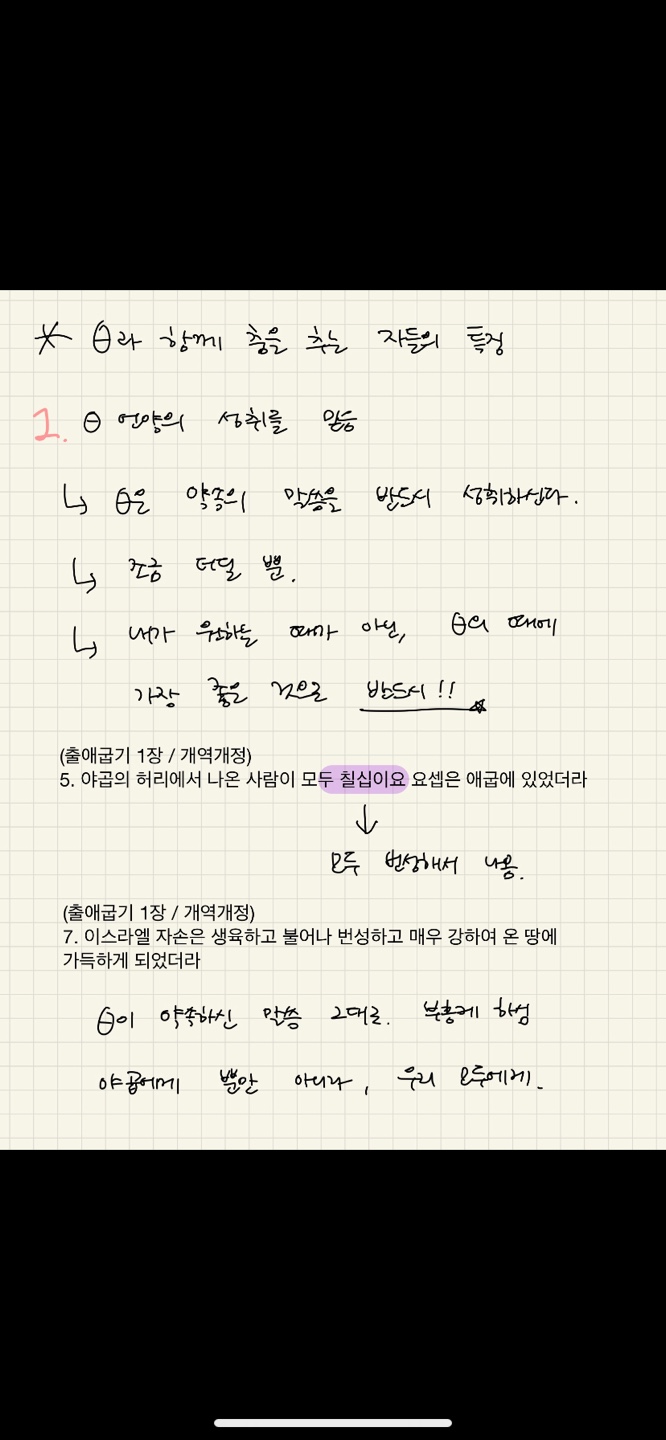 * θ라 함께 춤을 추는 자들의 특징
1. θ 언약의 성취를 믿음
↳ θ은 약속의 말씀을 반드시 성취하신다.
↳ 조금 더딜 뿐.
↳ 내가 원하는 때가 아닌, θ의 때에
가장 좋은 것으로 반드시!!
(출애굽기 1장 / 개역개정)
5. 야곱의 허리에서 나온 사람이 모두 칠십이요 요셉은 애굽에 있었더라
↓
모두 번성해서 나옴.
(출애굽기 1장 / 개역개정)
7. 이스라엘 자손은 생육하고 불어나 번성하고 매우 강하여 온 땅에
가득하게 되었더라
θ이 약속하신 말씀 그대로. 부흥케 하심
야곱에게 뿐만 아니라, 우리 모두에게.